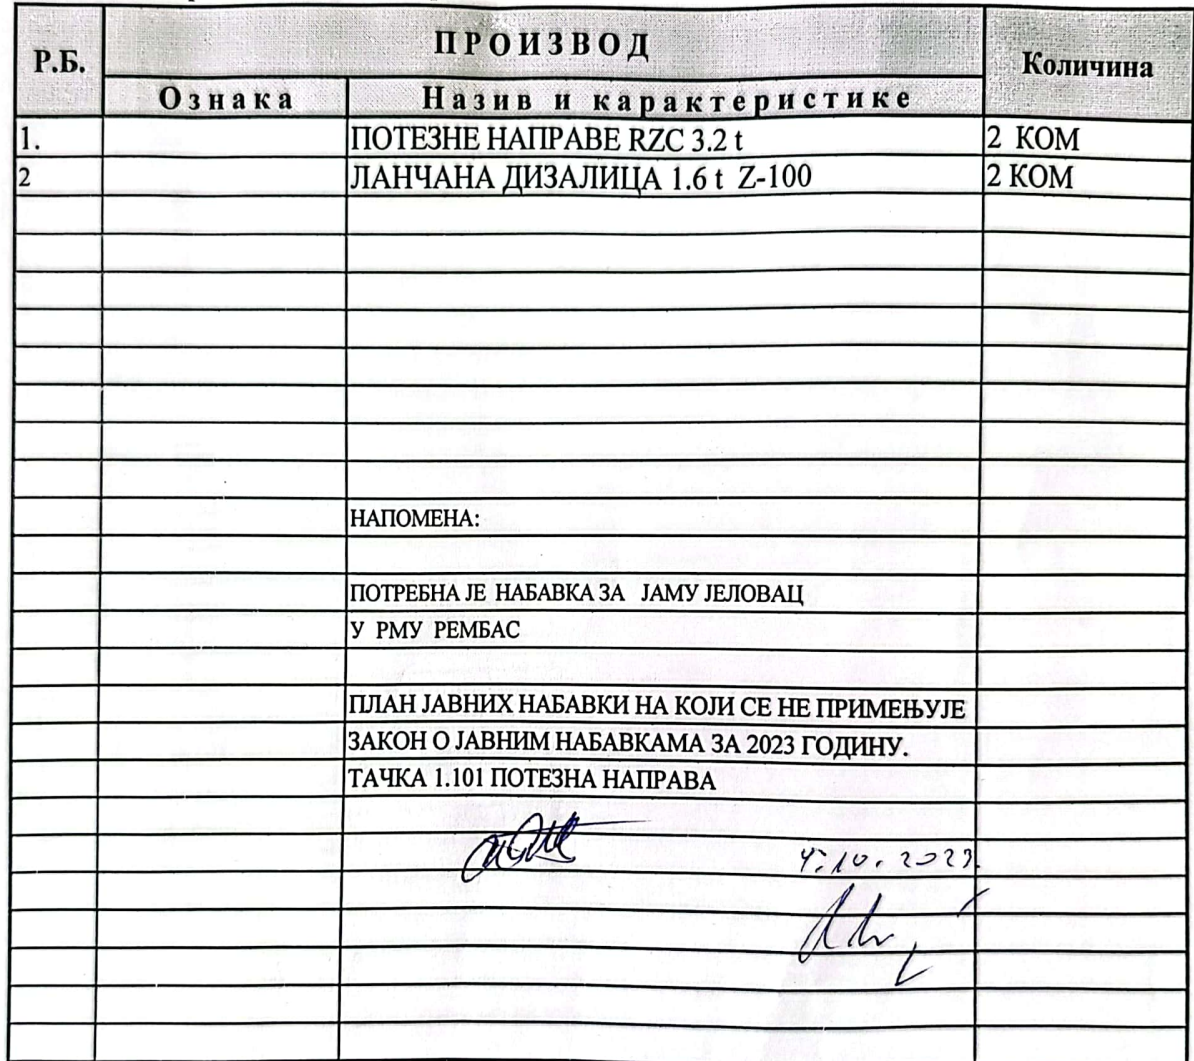 Р.Б.
ПРОИЗВОД
Количина
Ознака
Назив и карактеристике
1. ПОТЕЗНЕ НАПРАВЕ RZC 3.2 t 2 КОМ
2 ЛАНЧАНА ДИЗАЛИЦА 1.6 t Z-100 2 КОМ
НАПОМЕНА:
ПОТРЕБНА ЈЕ НАБАВКА ЗА ЈАМУ ЈЕЛОВАЦ
У РМУ РЕМБАС
ПЛАН ЈАВНИХ НАБАВКИ НА КОЈИ СЕ НЕ ПРИМЕЊУЈЕ
ЗАКОН О ЈАВНИМ НАБАВКАМА ЗА 2023 ГОДИНУ.
ТАЧКА 1.101 ПОТЕЗНА НАПРАВА
4.10.2023.